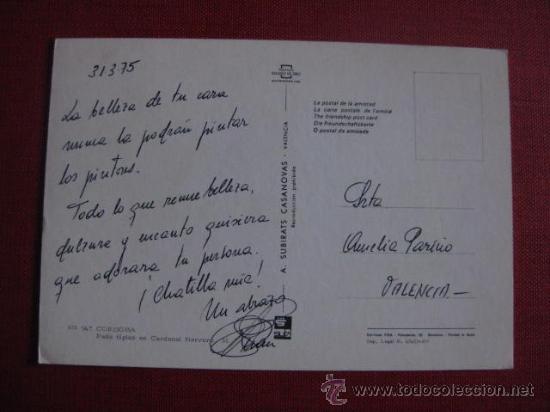 31375
La belleza de tu cara
nunca la podrán pintar
los pintores.
Todo lo que reune belleza,
dulzura y encanto quisiera
que adorara tu persona.
¡Chatilla mia!
Un abrazo
CORDOBA
Patio típico en Cardenal Herrero
A. SUBIRATS CASANOVAS - VALENCIA
Reproducción prohibida
La postal de la amistad
La carte postale de l'amitié
The friendship post card
Die Freundschaftskarte
O postal da amizade
Srta
Amelia Pariño
VALENCIA
todocoleccion.net